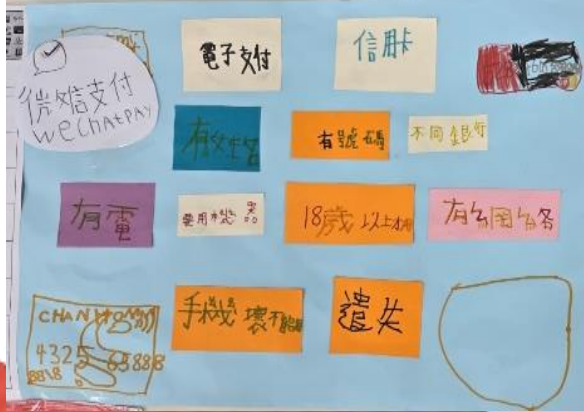 微信支付
WeChatPAY
電子支付
信用卡
有號碼
不同銀行
有電
要用機器
18歲以上才用
有網絡
手機壞不能用
遺失
CHAN
4325
8888